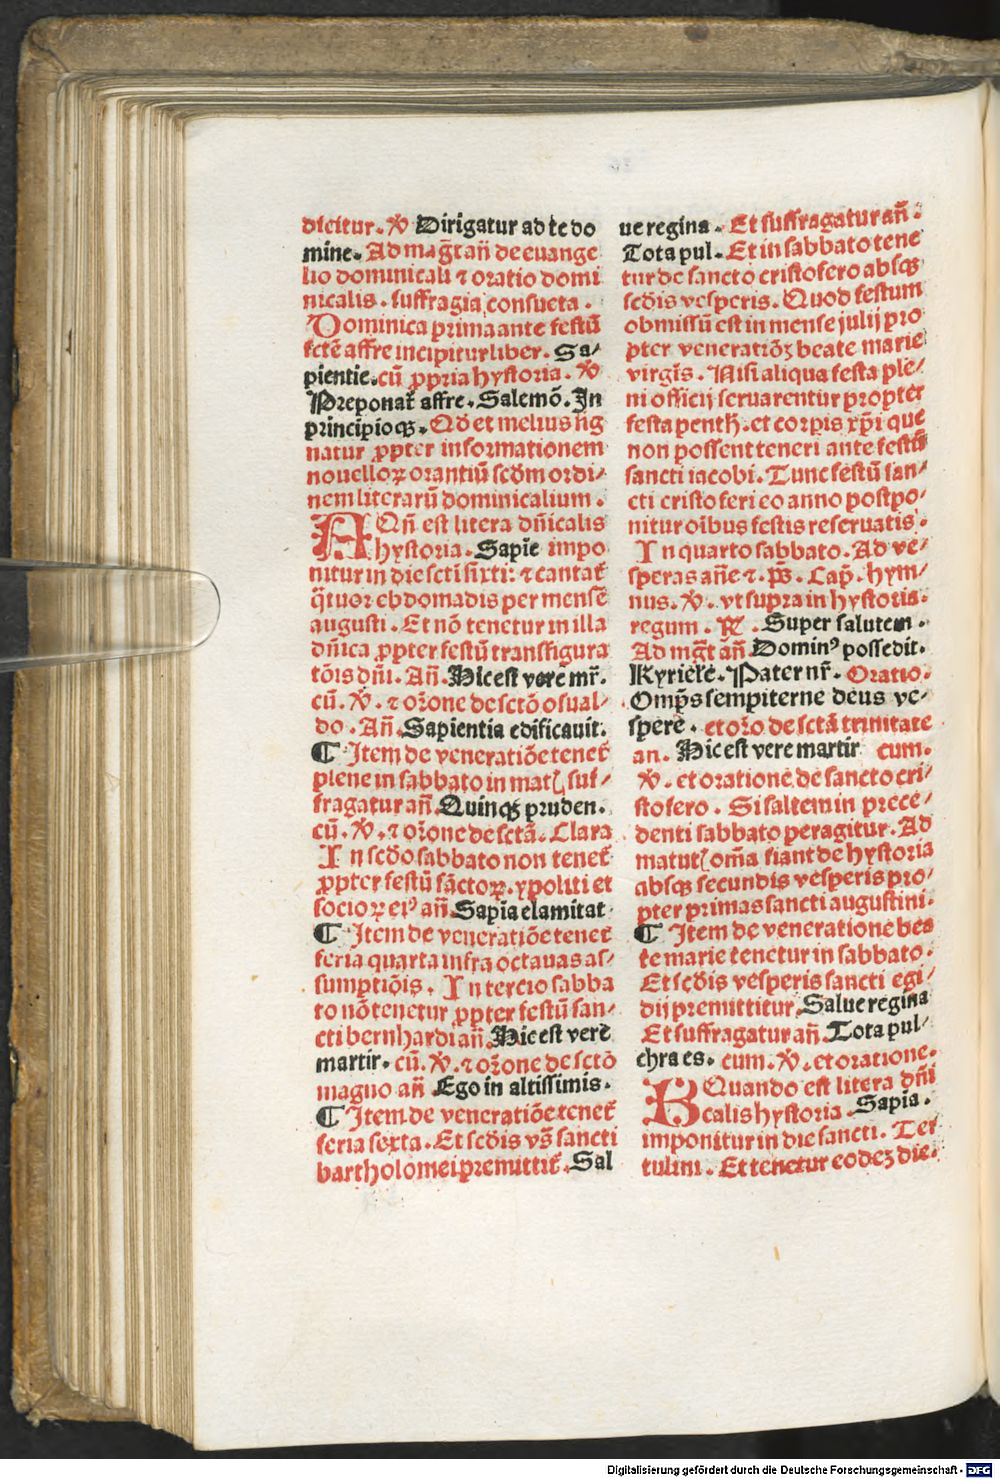 dicitur. ℣ Dirigatur ad te do
mine. Ad mag̃t añ de euange
lio dominicali ⁊ oratio domi
nicalis. suffragia consueta.
Dominica prima ante festũ
sctẽ affre incipitur liber. Sa⸗
pientie. cũ ꝓpria hystoria. ℣
Preponat᷑ affre. Salemõ. In
principio qꝫ. Qđ et melius sig
natur ꝓpter informationem
nouelloꝝ orantiũ scđm ordi⸗
nem literarũ dominicalium.
AQñ est litera dñicalis
hystoria. Sapiẽ impo
nitur in die scti sixti: ⁊ cantat᷑
q̃tuor ebdomadis per mensẽ
augusti. Et nõ tenetur in illa
dñica ꝓpter festũ transfigura
tõis dñi. Añ. Hic est vere mr̃.
cũ. ℣. ⁊ oõne de sctõ osual⸗
do. Añ. Sapientia edificauit.
¶ Item de veneratiõe tenet᷑
plene in sabbato in mat᷑ suf⸗
fragatur añ. Quinqꝫ pruden.
cũ. ℣. ⁊ oõne de sctã. Clara
In scđo sabbato non tenet᷑
ꝓpter festũ sãctoꝝ. ypoliti et
socioꝝ eiꝰ añ. Sapia clamitat
¶ Item de veneratiõe tenet᷑
feria quarta infra octauas as⸗
sumptiõis. In tercio sabba
to nõ tenetur ꝓpter festũ san⸗
cti bernhardi añ. Hic est verẽ
martir. cũ. ℣. ⁊ oõne de sctõ
magno añ Ego in altissimis.
¶ Item de veneratiõe tenet᷑
feria sexta. Et scđis vs̃ sancti
bartholomei premittit᷑. Sal
ue regina. Et suffragatur añ.
Tota pul. Et in sabbato tene
tur de sancto cristofero absqꝫ
scđis vesperis. Quod festum
obmissũ est in mense julij pro
pter veneratiõꝫ beate marie
virgĩs. Nisi aliqua festa ple⸗
ni officij seruarentur propter
festa penth̃. et corpis xp̃i que
non possent teneri ante festũ
sancti iacobi. Tunc festũ san⸗
cti cristoferi eo anno postpo⸗
nitur oĩbus festis reseruatis.
In quarto sabbato. Ad ve⸗
speras añe ⁊. p̃s. Cap̃. hym⸗
nus. ℣. vt supra in hystoris.
regum. ℟. Super salutem.
Ad mg̃t añ. Dominꝰ possedit.
Kyriele. Pater nr̃. Oratio.
Omp̃s sempiterne deus ve⸗
spere. et oõ de sctã trinitate
an. Hic est vere martir cum.
℣. et oratione de sancto cri⸗
stofero. Si saltem in prece⸗
denti sabbato peragitur. Ad
matut᷑ om̃a fiant de hystoria
absqꝫ secundis vesperis pro⸗
pter primas sancti augustini.
¶ Item de veneratione bea
te marie tenetur in sabbato.
Et scđis vesperis sancti egi⸗
dij premittitur Salue regina
Et suffragatur añ. Tota pul⸗
chra es. cum. ℣. et oratione.
BQuando est litera dñi
calis hystoria. Sapia.
imponitur in die sancti. Ter
tulini. Et tenetur eodeꝫ die.
Digitalisierung gefördert durch die Deutsche Forschungsgemeinschaft - DFG